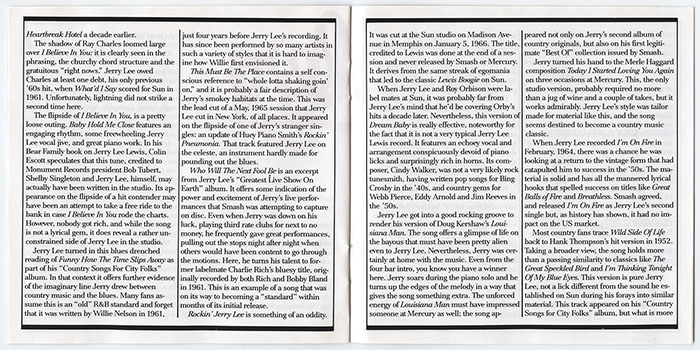 Heartbreak Hotel a decade earlier.
The shadow of Ray Charles loomed large
over I Believe In You: it is clearly seen in the
phrasing, the churchy chord structure and the
gratuitous "right nows." Jerry Lee owed
Charles at least one debt, his only previous
'60s hit, when What'd I Say scored for Sun in
1961. Unfortunately, lightning did not strike a
second time here.
The flipside of I Believe In You, is a pretty
loose outing. Baby Hold Me Close features an
engaging rhythm, some freewheeling Jerry
Lee vocal jive, and great piano work. In his
Bear Family book on Jerry Lee Lewis, Colin
Escott speculates that this tune, credited to
Monument Records president Bob Tubert,
Shelby Singleton and Jerry Lee, himself, may
actually have been written in the studio. Its ap-
pearance on the flipside of a hit contender may
have been an attempt to take a free ride to the
bank in case I Believe In You rode the charts.
However, nobody got rich, and while the song
is not a lyrical gem, it does reveal a rather un-
constrained side of Jerry Lee in the studio.
Jerry Lee turned in this blues drenched
reading of Funny How The Time Slips Away as
part of his "Country Songs For City Folks"
album. In that context it offers further evidence
of the imaginary line Jerry drew between
country music and the blues. Many fans as-
sume this is an "old" R&B standard and forget
that it was written by Willie Nelson in 1961,
just four years before Jerry Lee's recording. It
has since been performed by so many artists in
such a variety of styles that it is hard to imag-
ine how Willie first envisioned it.
This Must Be The Place contains a self con-
scious reference to "whole lotta shaking goin'
on," and it is probably a fair description of
Jerry's smokey habitats at the time. This was
the lead cut of a May, 1965 session that Jerry
Lee cut in New York, of all places. It appeared
on the flipside of one of Jerry's stranger sin-
gles: an update of Huey Piano Smith's Rockin'
Pneumonia. That track featured Jerry Lee on
the celeste, an instrument hardly made for
pounding out the blues.
Who Will The Next Fool Be is an excerpt
from Jerry Lee's "Greatest Live Show On
Earth" album. It offers some indication of the
power and excitement of Jerry's live perfor-
mances that Smash was attempting to capture
on disc. Even when Jerry was down on his
luck, playing third rate clubs for next to no
money, he frequently gave great performances,
pulling out the stops night after night when
others would have been content to go through
the motions. Here, he turns his talent to for-
mer labelmate Charlie Rich's bluesy title, orig-
inally recorded by both Rich and Bobby Bland
in 1961. This is an example of a song that was
on its way to becoming a "standard" within
months of its initial release.
Rockin' Jerry Lee is something of an oddity.
It was cut at the Sun studio on Madison Ave-
nue in Memphis on January 5, 1966. The title,
credited to Lewis was done at the end of a ses-
sion and never released by Smash or Mercury.
It derives from the same streak of egomania
that led to the classic Lewis Boogie on Sun.
When Jerry Lee and Roy Orbison were la-
bel mates at Sun, it was probably far from
Jerry Lee's mind that he'd be covering Orby's
hits a decade later. Nevertheless, this version of
Dream Baby is really effective, noteworthy for
the fact that it is not a very typical Jerry Lee
Lewis record. It features an echoey vocal and
arrangement conspicuously devoid of piano
licks and surprisingly rich in horns. Its com-
poser, Cindy Walker, was not a very likely rock
tunesmith, having written pop songs for Bing
Crosby in the '40s, and country gems for
Webb Pierce, Eddy Arnold and Jim Reeves in
the '50s.
Jerry Lee got into a good rocking groove to
render his version of Doug Kershaw's Loui-
siana Man. The song offers a glimpse of life on
the bayous that must have been pretty alien
even to Jerry Lee. Nevertheless, Jerry was cer-
tainly at home with the music. Even from the
four bar intro, you know you have a winner
here. Jerry soars during the piano solo and he
turns up the edges of the melody in a way that
gives the song something extra. The unforced
energy of Louisiana Man must have impressed
someone at Mercury as well; the song ap-
peared not only on Jerry's second album of
country originals, but also on his first legiti-
mate "Best Of" collection issued by Smash.
Jerry turned his hand to the Merle Haggard
composition Today I Started Loving You Again
on three occasions at Mercury. This, the only
studio version, probably required no more
than a jug of wine and a couple of takes, but it
works admirably. Jerry Lee's style was tailor
made for material like this, and the song
seems destined to become a country music
classic.
When Jerry Lee recorded I'm On Fire in
February, 1964, there was a chance he was
looking at a return to the vintage form that had
catapulted him to success in the '50s. The ma-
terial is solid and has all the mannered lyrical
hooks that spelled success on titles like Great
Balls of Fire and Breathless. Smash agreed,
and released I'm On Fire as Jerry Lee's second
single but, as history has shown, it had no im-
pact on the US market.
Most country fans trace Wild Side Of Life
back to Hank Thompson's hit version in 1952.
Taking a broader view, the song holds more
than a passing similarity to classics like The
Great Speckled Bird and I'm Thinking Tonight
Of My Blue Eyes. This version is pure Jerry
Lee, not a lick different from the sound he es-
tablished on Sun during his forays into similar
material. This track appeared on his "Country
Songs for City Folks" album, but what is more